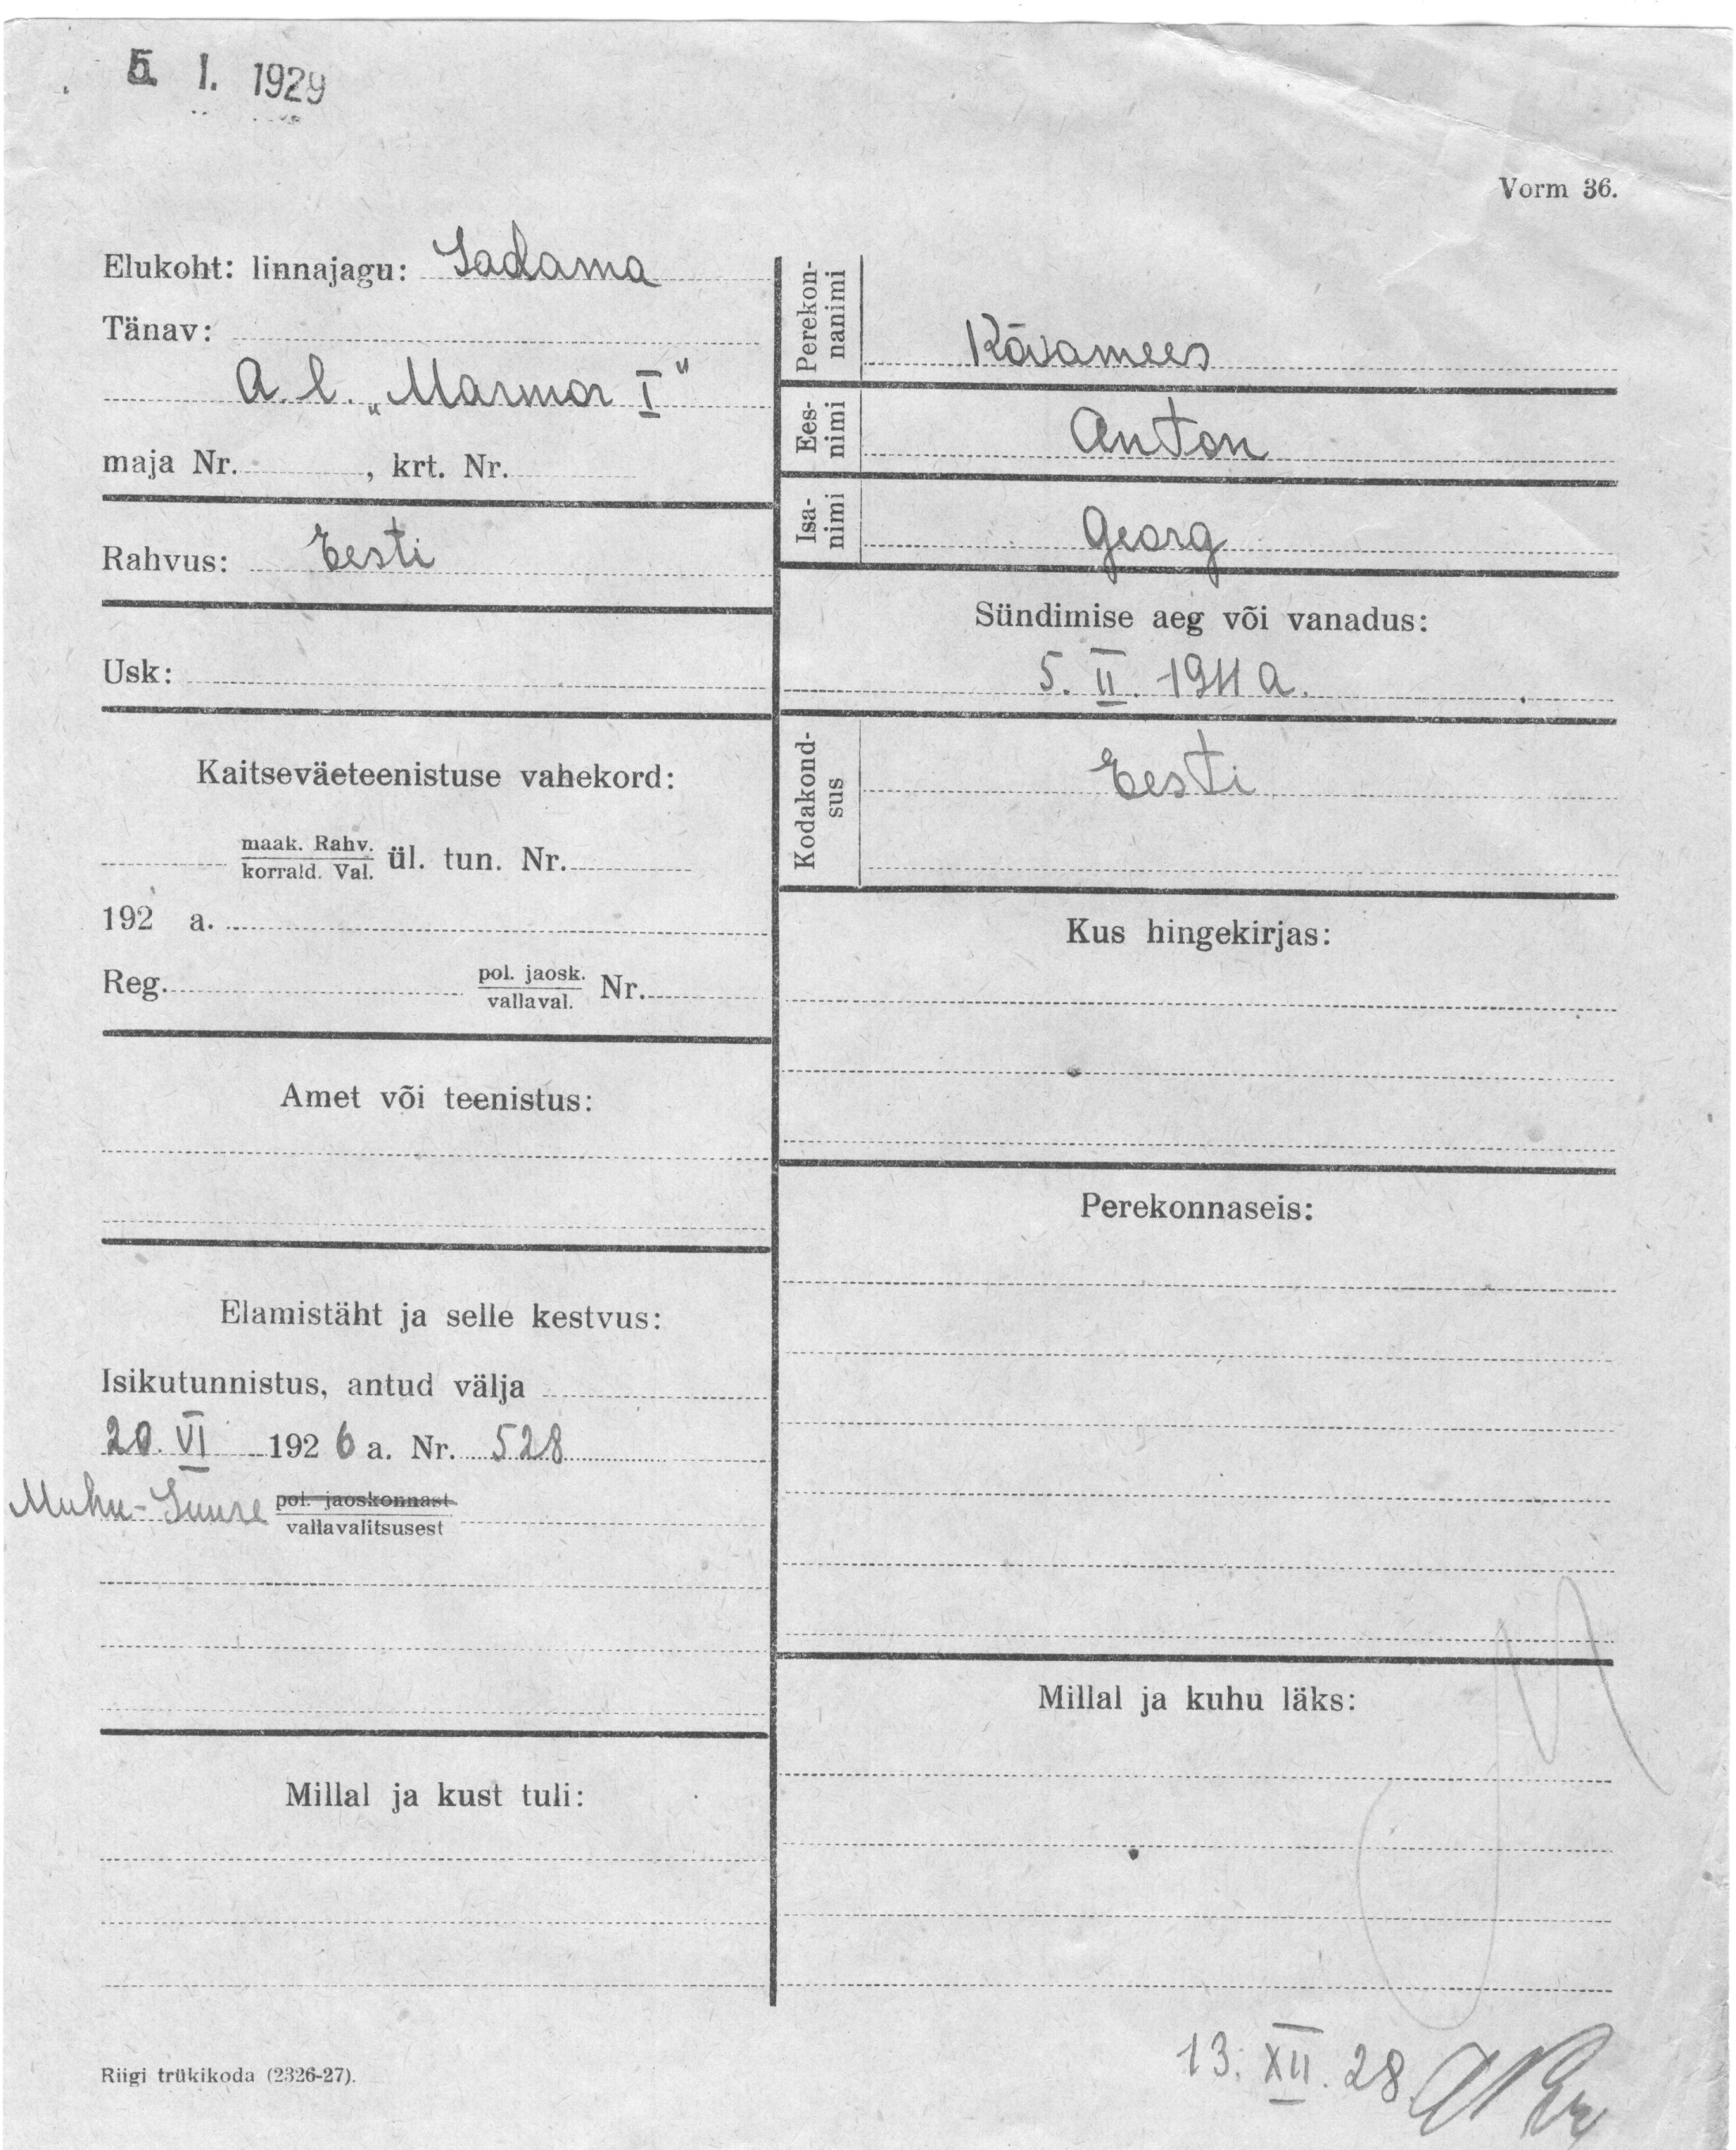 5. I. 1929
Vorm 36.
Elukoht: linnajagu: Sadama
Tänav:
A. l. „Marmor I"
maja Nr. , krt. Nr.
Rahvus: Eesti
Usk:
Kaitseväeteenistuse vahekord:
maak. Rahv.
korrald. Val. ül. tun. Nr.
192 a.
Reg. pol. jaosk.
vallaval. Nr.
Amet või teenistus:
Elamistäht ja selle kestvus:
Isikutunnistus, antud välja
20. VI 1926 a. Nr. 528
Muhu-Suure pol. jaoskonnast
vallavalitsusest
Millal ja kust tuli:
Riigi trükikoda (2326-27).
Perekon-
nanimi
Kõvamees
Ees-
nimi
Anton
Isa-
nimi
Georg
Sündimise aeg või vanadus:
5. II. 1911 a.
Kodakond-
sus
Eesti
Kus hingekirjas:
Perekonnaseis:
Millal ja kuhu läks:
13. XII. 28.